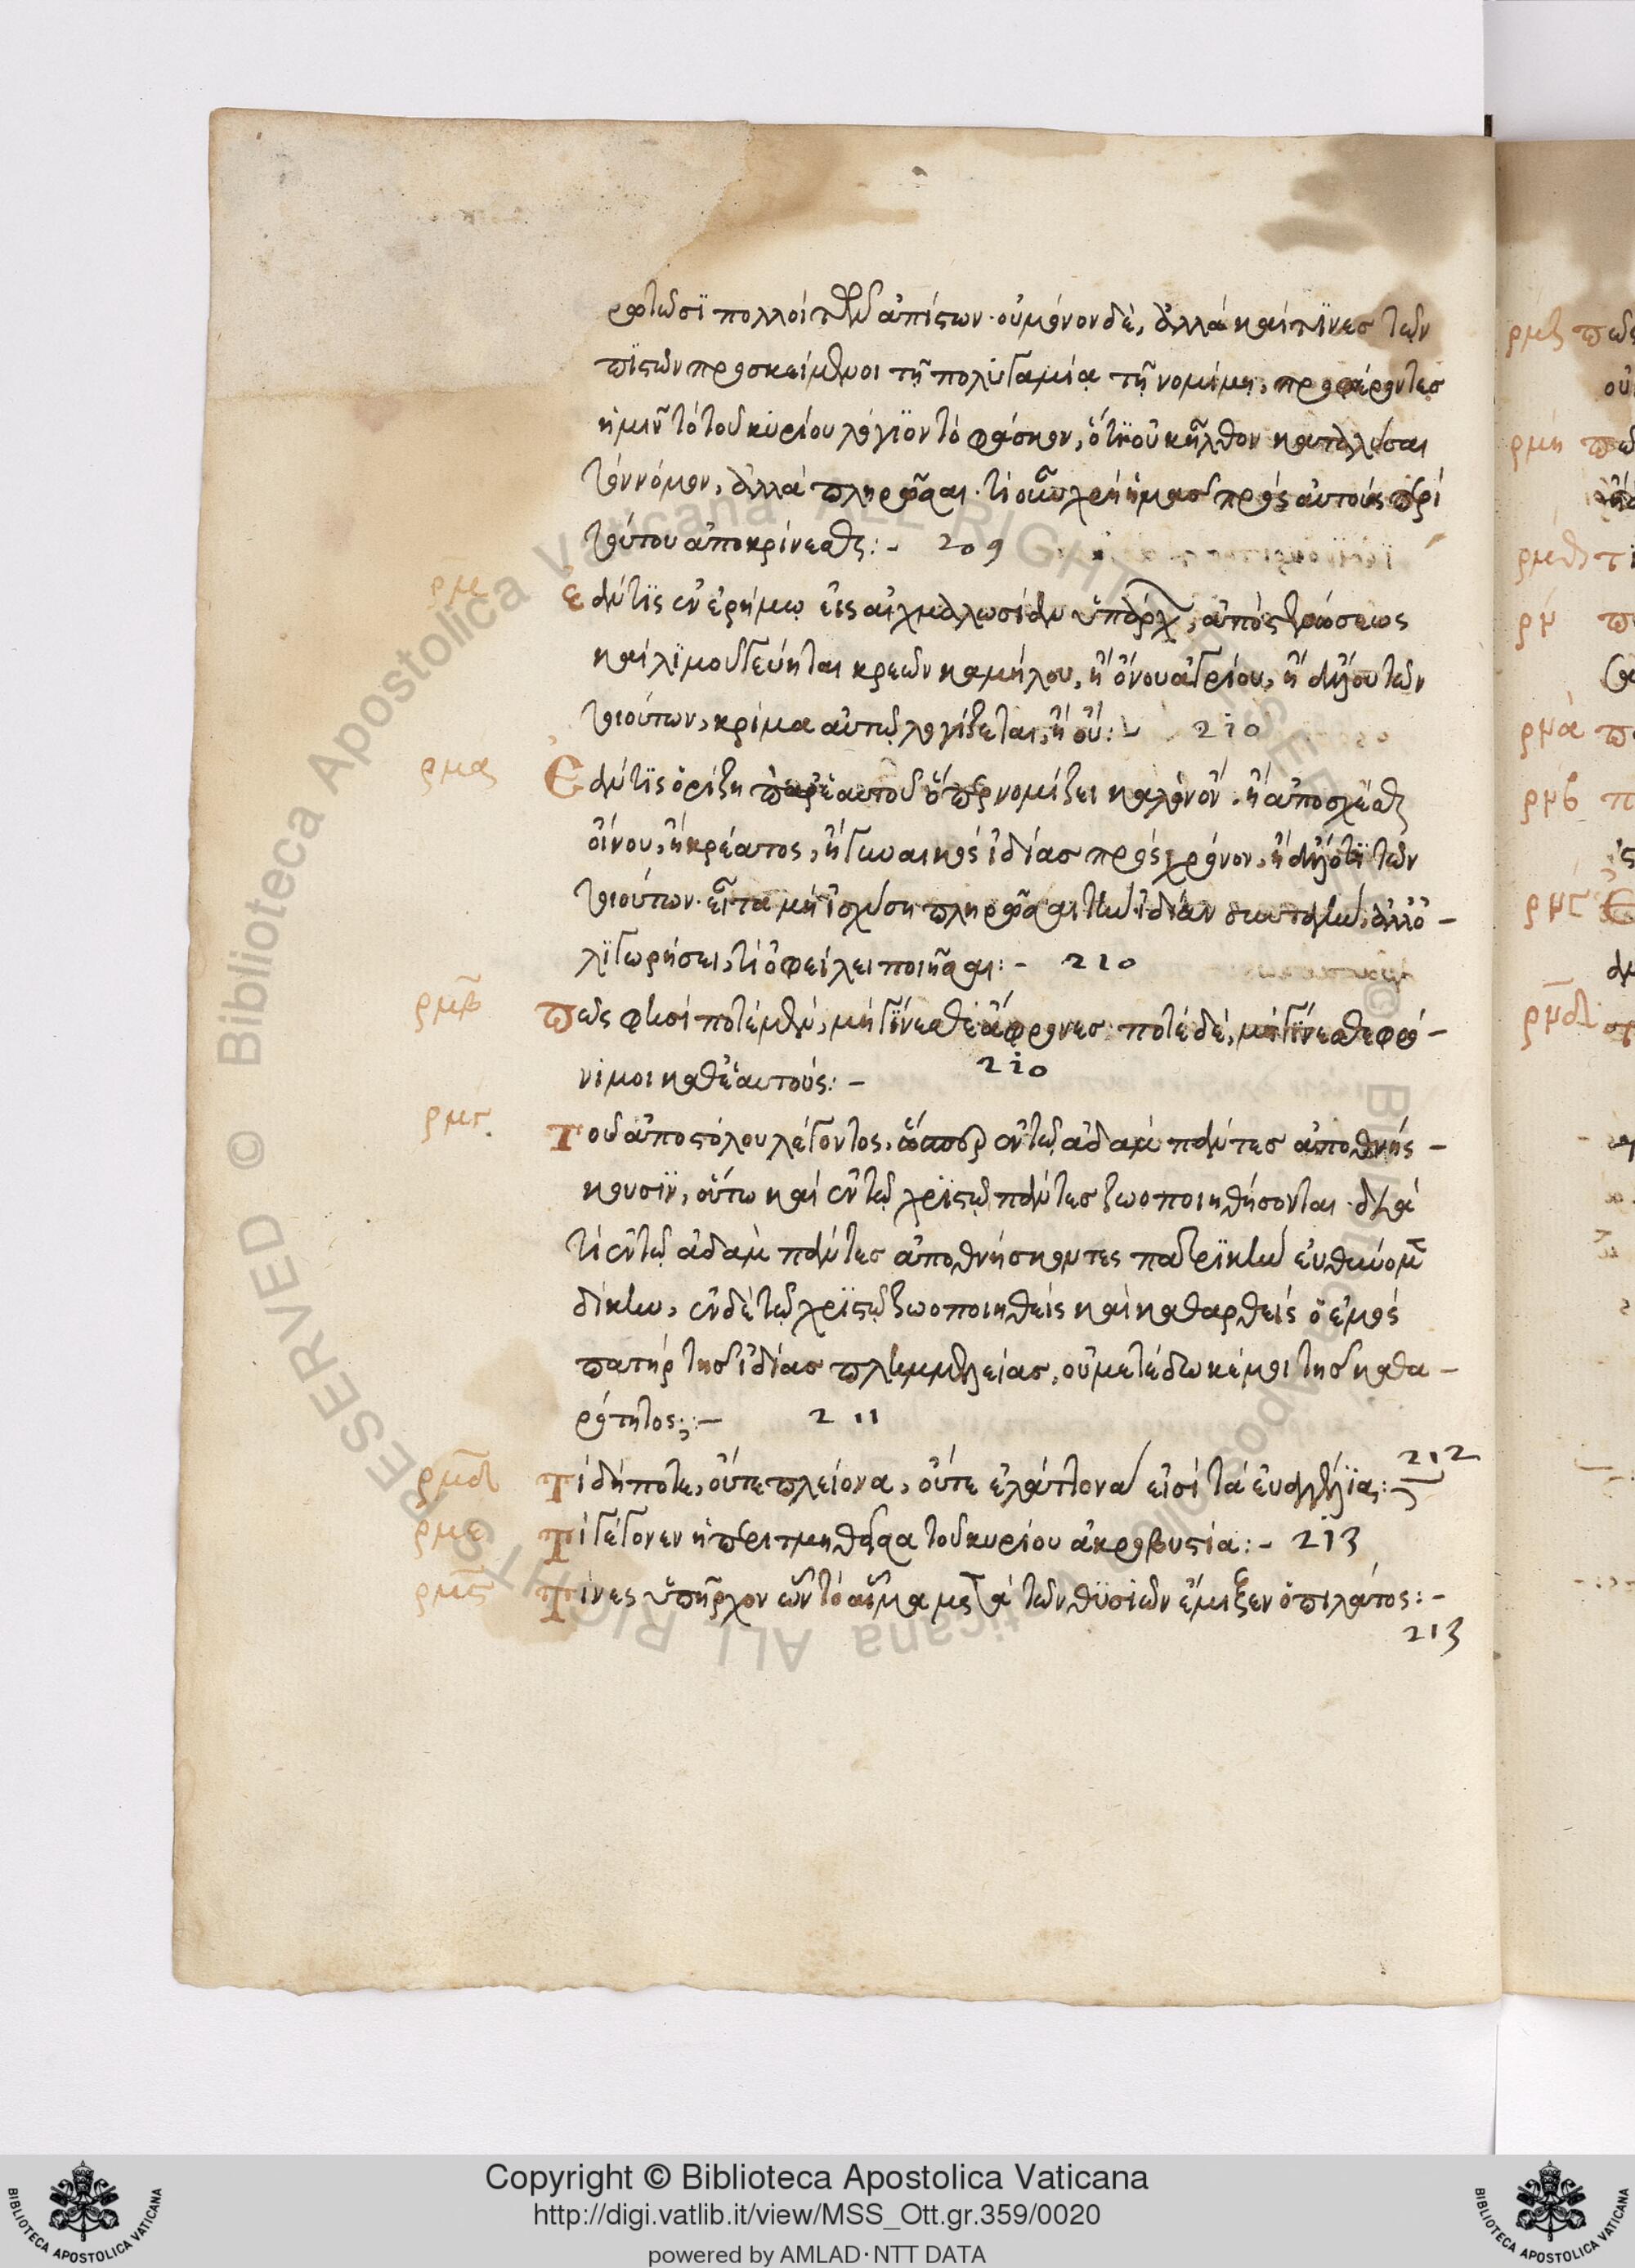 ρωτῶσι πολλοὶ τῶν ἀπίστων· οὐ μόνον δὲ, ἀλλὰ καὶ τινὲς τῶν
πιστῶν προσκείμενοι τῇ πολυγαμίᾳ τῇ νομίμῃ, προφέροντες
ἡμῖν τὸ τοῦ κυρίου λόγιον τὸ φάσκον, ὅτι οὐκ ἦλθον καταλῦσαι
τὸν νόμον, ἀλλὰ πληρῶσαι· τί οὖν χρὴ ἡμᾶς πρὸς αὐτοὺς περὶ
τούτου ἀποκρίνεσθαι:- 209
ρμ Ἐάν τις ἐν ἐρήμῳ εἰς αἰχμαλωσίαν ὑπάρχῃ, ἀπὸ στενώσεως
καὶ λιμοῦ γεύηται κρεῶν καμήλου, ἢ ὀνου ἀγρίου, ἢ ἄλλου τῶν
τοιούτων, κρίμα αὐτῷ λογίζεται, ἢ οὔ:- 210
ρμα Ἐάν τις ὁρίζῃ παρ' ἑαυτοῦ ὅπερ νομίζει καλὸν ὂν· ἢ ἀποσχέσθαι
οἴνου, ἢ κρέατος, ἢ γυναικὸς ἰδίας πρὸς χρόνον, ἢ ἄλλό τι τῶν
τοιούτων· εἶτα μὴ ἰσχύσῃ πληρῶσαι τὴν ἰδίαν συνταγὴν, ἀλλ' ὀ-
λιγωρήσει, τί ὀφείλει ποιῆσαι:- 210
ρμβ Πῶς φησὶ ποτὲ μὲν, μὴ γίνεσθε ἄφρονες· ποτὲ δὲ, μὴ γίνεσθε φρό-
νιμοι καθ' ἑαυτούς:- 210
ρμγ Τοῦ ἀποστόλου λέγοντος, ὥσπερ ἐν τῷ ἀδὰμ πάντες ἀποθνήσ-
κουσιν, οὕτω καὶ ἐν τῷ χριστῷ πάντες ζωοποιηθήσονται· διὰ
τί ἐν τῷ ἀδὰμ πάντες ἀποθνήσκοντες πατρικὴν εὐθυνόμεθα
δίκην, ἐν δὲ τῷ χριστῷ ζωοποιηθεὶς καὶ καθαρθεὶς ὁ ἐμὸς
πατὴρ τῆς ἰδίας πλημμελείας, οὐ μετέδωκέ μοι τῆς καθα-
ρότητος;:- 211
ρμδ Τί δήποτε, οὔτε πλείονα, οὔτε ἐλάττονα εἰσὶ τὰ εὐαγγέλια:- 212
ρμε Τί γέγονεν ἡ περιτμηθεῖσα τοῦ κυρίου ἀκροβυστία:- 213
ρμς Τίνες ὑπῆρχον ὧν τὸ αἷμα μετὰ τῶν θυσιῶν ἔμιξεν ὁ πιλάτος:-
213
Copyright © Biblioteca Apostolica Vaticana
http://digi.vatlib.it/view/MSS_Ott.gr.359/0020
powered by AMLAD·NTT DATA